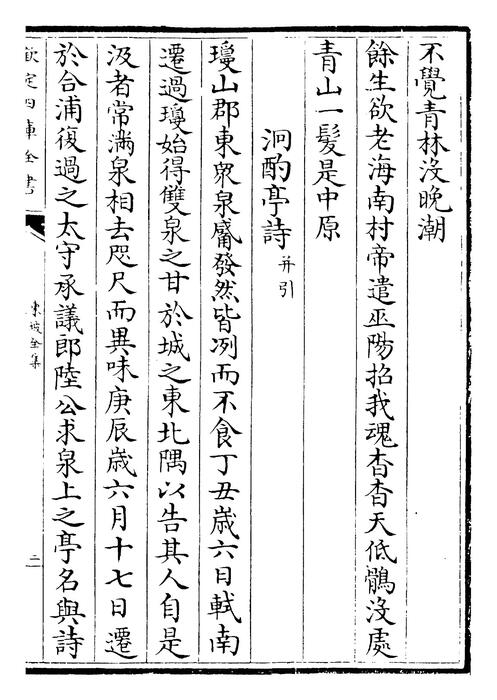 不覺青林沒晚潮
餘生欲老海南村帝遣巫陽招我魂杳杳天低鶻沒處
青山一髮是中原
泂酌亭詩 并引
瓊山郡東衆泉觱發然皆冽而不食丁丑歲六月軾南
遷過瓊始得雙泉之甘於城之東北隅以告其人自是
汲者常滿泉相去咫尺而異味庚辰歲六月十七日遷
於合浦復過之太守承議郎陸公求泉上之亭名與詩
欽定四庫全書
東坡全集
二